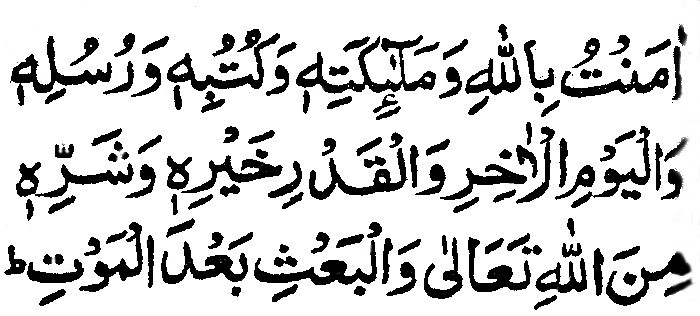 اٰمَنْتُ بِاللّٰهِ وَمَلٰٓئِكَتِهٖ وَكُتُبِهٖ وَرُسُلِهٖ
وَالْيَوْمِ الْاٰخِرِ وَالْقَدْرِ خَيْرِهٖ وَشَرِّهٖ
مِنَ اللّٰهِ تَعَالٰى وَالْبَعْثِ بَعْدَ الْمَوْتِ ؕ